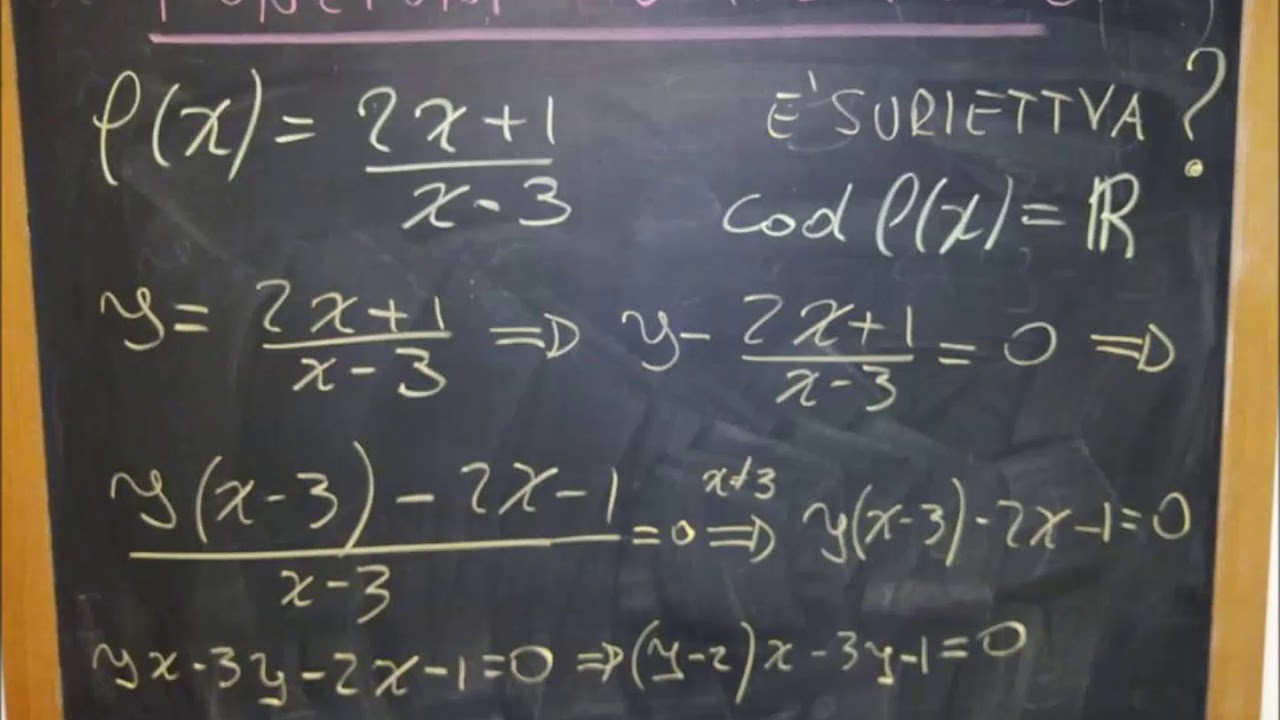 f(x) = (2x+1)/(x-3) E' SURIETTVA ?
cod f(x) = ℝ
y = (2x+1)/(x-3) ⇒ y - (2x+1)/(x-3) = 0 ⇒
(y(x-3) - 2x-1)/(x-3) = 0 x≠3 ⇒ y(x-3) - 2x-1 = 0
yx-3y-2x-1=0 ⇒ (y-2)x-3y-1=0